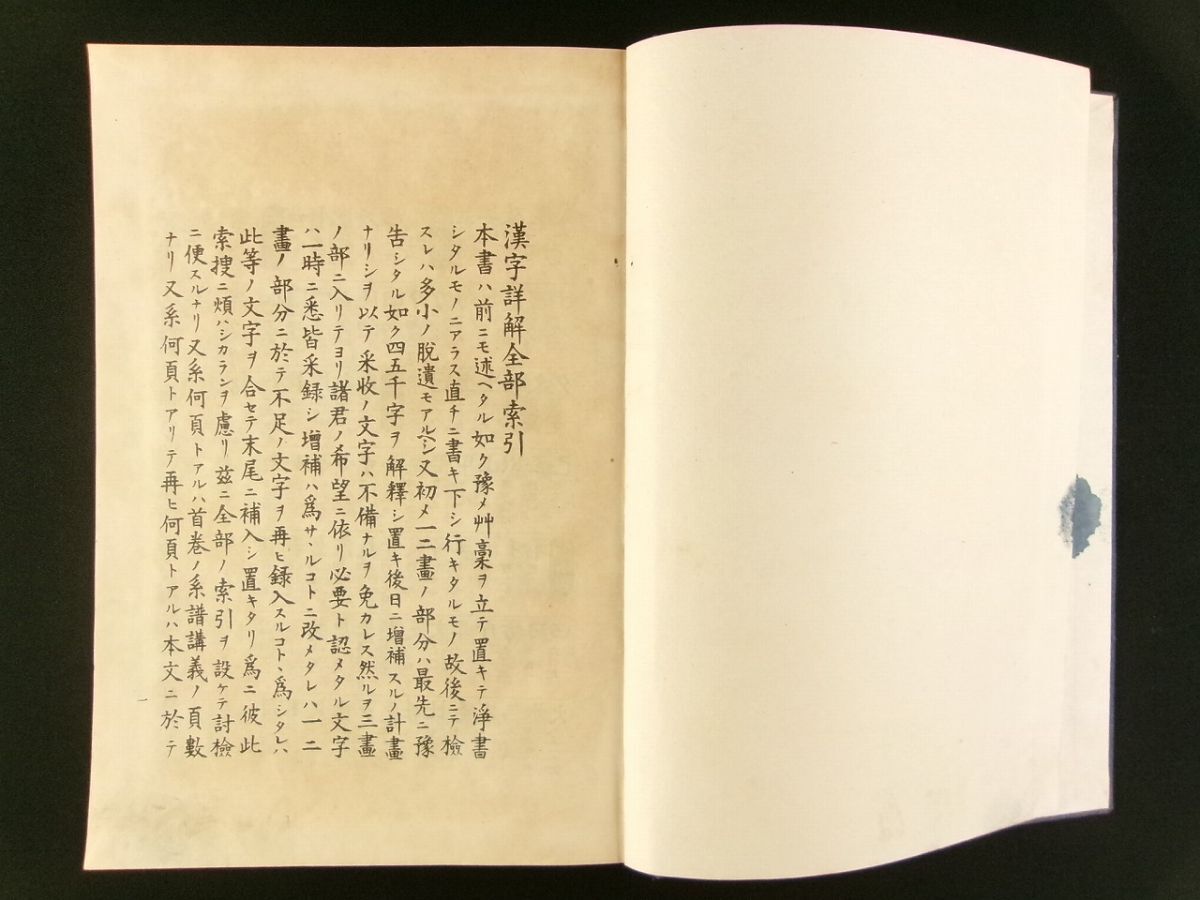 漢字詳解全部索引
本書ハ前ニモ述ヘタル如ク豫メ艸稾ヲ立テ置キテ淨書
シタルモノニアラス直チニ書キ下シ行キタルモノ故後ニテ檢
スレハ多小ノ脫遺モアルヘシ又初メ一二畫ノ部分ハ最先ニ豫
告シタル如ク四五千字ヲ解釋シ置キ後日ニ增補スルノ計畫
ナリシヲ以テ采收ノ文字ハ不備ナルヲ免カレス然ルヲ三畫
ノ部ニ入リテヨリ諸君ノ希望ニ依リ必要ト認メタル文字
ハ一時ニ悉皆采錄シ增補ハ爲サヽルコトニ改メタレハ一二
畫ノ部分ニ於テ不足ノ文字ヲ再ヒ錄入スルコトヽ爲シタレハ
此等ノ文字ヲ合セテ末尾ニ補入シ置キタリ爲ニ彼此
索搜ニ煩ハシカランヲ慮リ玆ニ全部ノ索引ヲ設ケテ討檢
ニ便スルナリ又系何頁トアルハ首卷ノ系譜講義ノ頁數
ナリ又系何頁トアリテ再ヒ何頁トアルハ本文ニ於テ
一